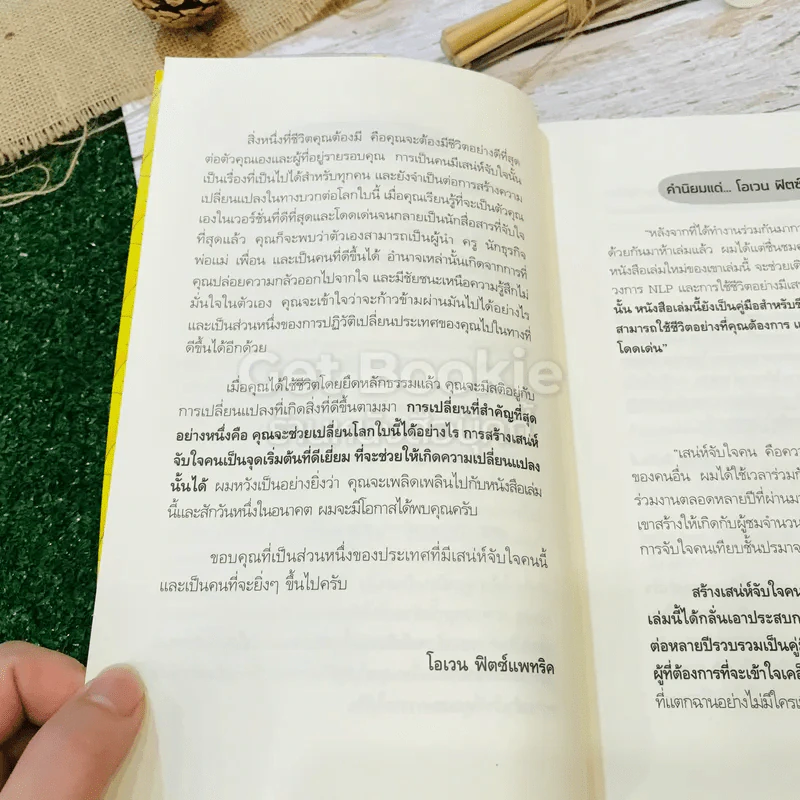 สิ่งหนึ่งที่ชีวิตคุณต้องมี คือคุณจะต้องมีชีวิตอย่างดีที่สุด
ต่อตัวคุณเองและผู้ที่อยู่รายรอบคุณ การเป็นคนมีเสน่ห์จับใจนั้น
เป็นเรื่องที่เป็นไปได้สำหรับทุกคน และยังจำเป็นต่อการสร้างความ
เปลี่ยนแปลงในทางบวกต่อโลกใบนี้ เมื่อคุณเรียนรู้ที่จะเป็นตัวคุณ
เองในเวอร์ชั่นที่ดีที่สุดและโดดเด่นจนกลายเป็นนักสื่อสารที่จับใจ
ที่สุดแล้ว คุณก็จะพบว่าตัวเองสามารถเป็นผู้นำ ครู นักธุรกิจ
พ่อแม่ เพื่อน และเป็นคนที่ดีขึ้นได้ อำนาจเหล่านั้นเกิดจากการที่
คุณปล่อยความกลัวออกไปจากใจ และมีชัยชนะเหนือความรู้สึกไม่
มั่นใจในตัวเอง คุณจะเข้าใจว่าจะก้าวข้ามผ่านมันไปได้อย่างไร
และเป็นส่วนหนึ่งของการปฏิวัติเปลี่ยนประเทศของคุณไปในทางที่
ดีขึ้นได้อีกด้วย
Get Bookie
เมื่อคุณได้ใช้ชีวิตโดยยึดหลักธรรมแล้ว คุณจะมีสติอยู่กับ
การเปลี่ยนแปลงที่เกิดสิ่งที่ดีขึ้นตามมา การเปลี่ยนที่สำคัญที่สุด
อย่างหนึ่งคือ คุณจะช่วยเปลี่ยนโลกใบนี้ได้อย่างไร การสร้างเสน่ห์
จับใจคนเป็นจุดเริ่มต้นที่ดีเยี่ยม ที่จะช่วยให้เกิดความเปลี่ยนแปลง
นั้นได้ ผมหวังเป็นอย่างยิ่งว่า คุณจะเพลิดเพลินไปกับหนังสือเล่ม
นี้และสักวันหนึ่งในอนาคต ผมจะมีโอกาสได้พบคุณครับ
ขอบคุณที่เป็นส่วนหนึ่งของประเทศที่มีเสน่ห์จับใจคนนี้
และเป็นคนที่จะยิ่งๆ ขึ้นไปครับ
โอเวน ฟิตซ์แพทริค
คำนิยมแด่... โอเวน ฟิตซ์
"หลังจากที่ได้ทำงานร่วมกันมาการ
ด้วยกันมาห้าเล่มแล้ว ผมได้แต่ชื่นชม
หนังสือเล่มใหม่ของเขาเล่มนี้ จะช่วยเติ
วงการ NLP และการใช้ชีวิตอย่างมีเส
นั้น หนังสือเล่มนี้ยังเป็นคู่มือสำหรับชี
สามารถใช้ชีวิตอย่างที่คุณต้องการ แ
โดดเด่น"
"เสน่ห์จับใจคน คือควา
ของคนอื่น ผมได้ใช้เวลาร่วมกั
ร่วมงานตลอดหลายปีที่ผ่านมา
เขาสร้างให้เกิดกับผู้ชมจำนวน
การจับใจคนเทียบชั้นปรมาจ
สร้างเสน่ห์จับใจคน
เล่มนี้ได้กลั่นเอาประสบก
ต่อหลายปีรวบรวมเป็นคู่มื
ผู้ที่ต้องการที่จะเข้าใจเคล็
ที่แตกฉานอย่างไม่มีใครเ